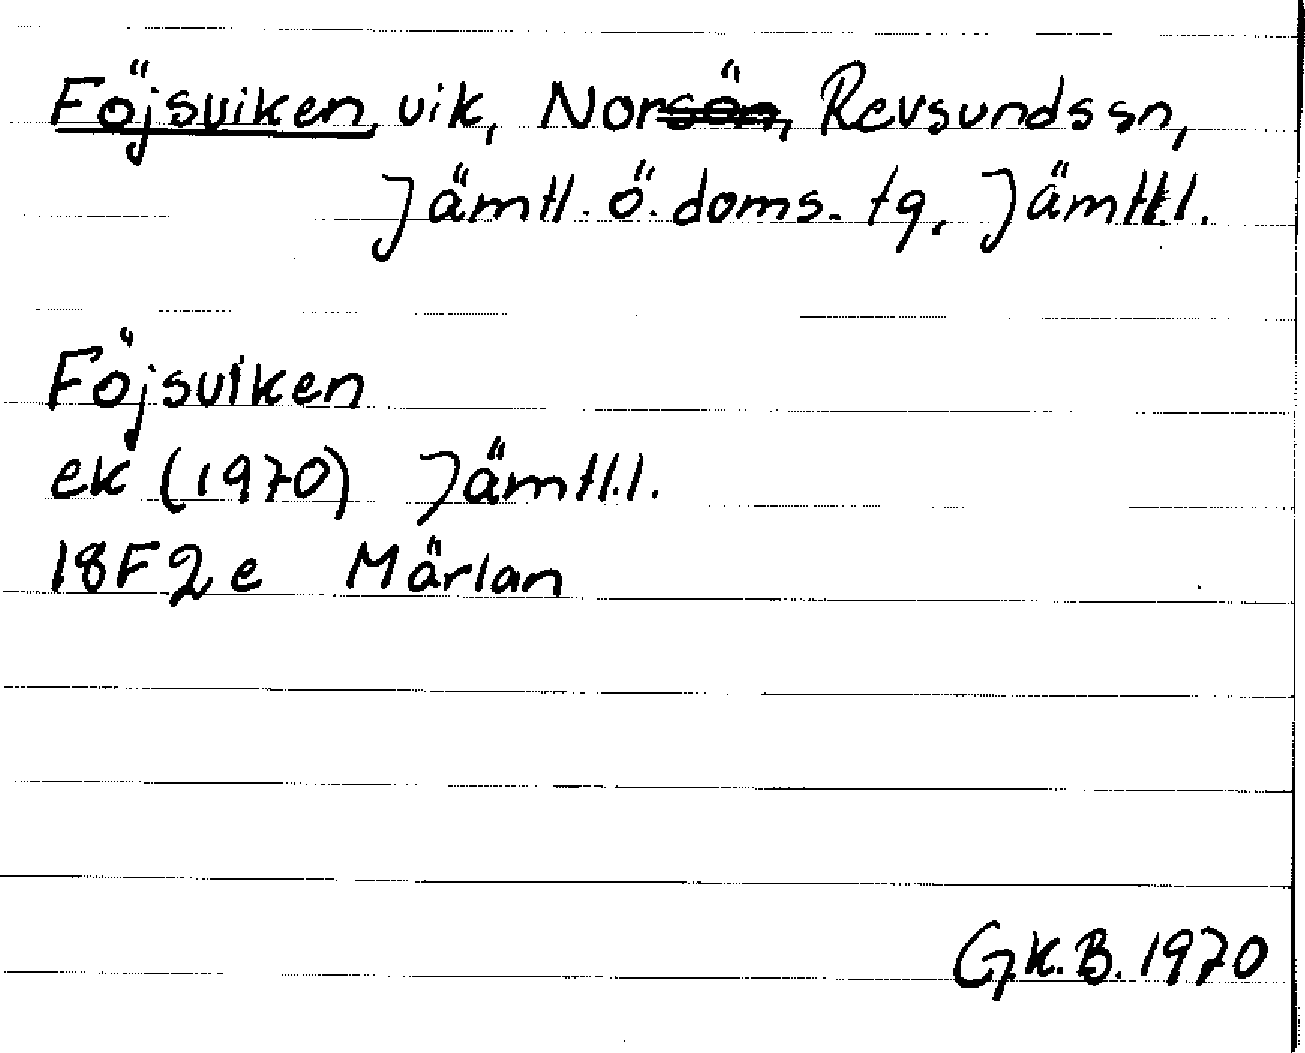 Föjsviken, vik, Norsön, Revsunds sn,
Jämtl. ö. doms. tg, Jämtl.l.
Föjsviken
ek (1970) Jämtl.l.
18F2e Märlan
G.K.B. 1970